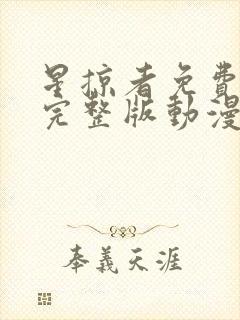 星掠者免費
完整版動漫
奉義天涯